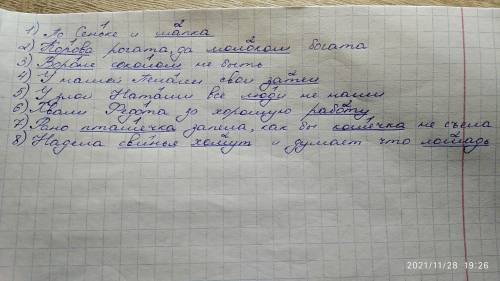 1) По Сеньке и шапка
2) Корова рогата, да молоком богата
3) Вороне соколом не быть
4) У нашей Пелагеи свои затеи
5) У злой Наташи все люди не наши
6) Хвали Федота за хорошую работу
7) Рано пташечка запела, как бы кошечка не съела
8) Надела свинья хомут и думает что лошадь
2021/11/28 19:26